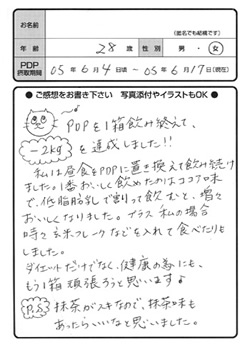 お名前
(匿名でも結構です)
年齢 28歳 性別 男・女
PDP摂取期間 05年6月4日頃～05年6月17日(現在)
●ご感想をお書き下さい 写真添付やイラストもOK●
PDPを1箱飲み終えて、
－2kgを達成しました!!
私は昼食をPDPに置き換えて飲み続け
ました。1番おいしく飲めたのはココア味
で、低脂肪乳で割って飲むと、増々
おいしくなりました。プラス 私の場合
時々玄米フレークなどを入れて食べたりも
しました。
ダイエットだけでなく、健康の為にも、
もう1箱頑張ろうと思います♪
P.S 抹茶がスキなので、抹茶味も
あったらいいなと思いました。